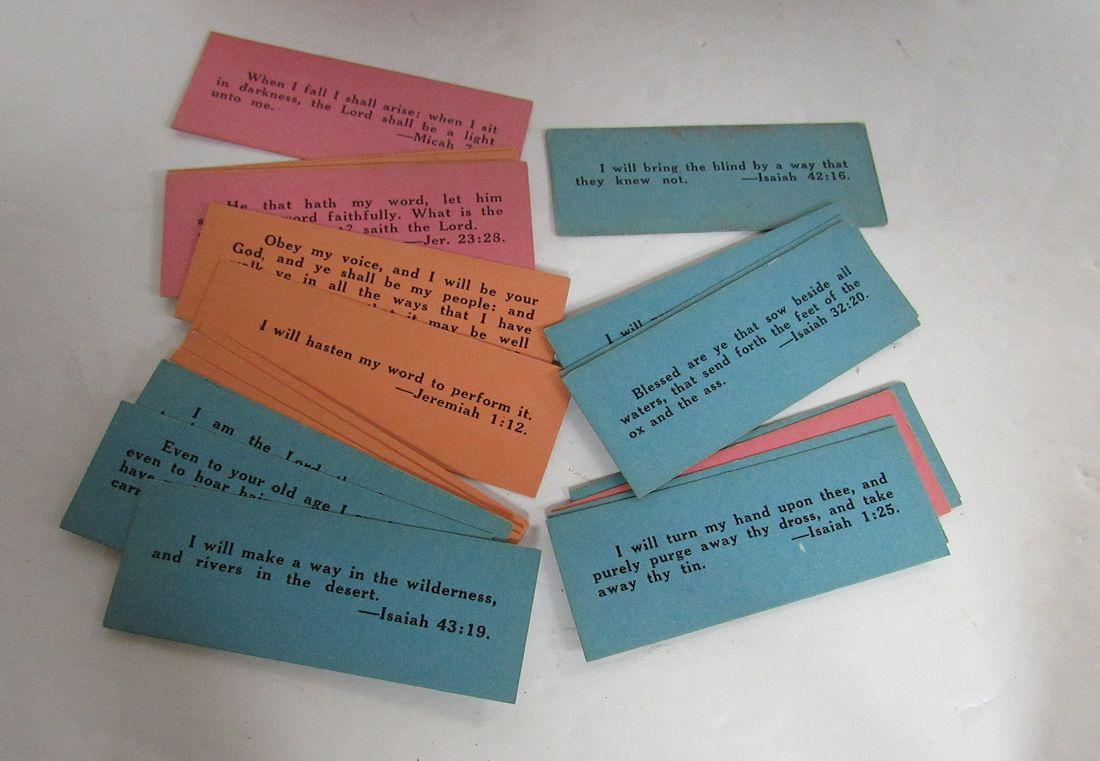 When I fall I shall arise; when I sit
in darkness, the Lord shall be a light
unto me.
—Micah
He that hath my word, let him
word faithfully. What is the
saith the Lord.
—Jer. 23:28.
Obey my voice, and I will be your
God, and ye shall be my people: and
walk ye in all the ways that I have
that it may be well
I will hasten my word to perform it.
—Jeremiah 1:12.
I am the Lord
Even to your old age I
even to hoar
have
I will make a way in the wilderness,
and rivers in the desert.
—Isaiah 43:19.
I will bring the blind by a way that
they knew not. —Isaiah 42:16.
I will
Blessed are ye that sow beside all
waters, that send forth the feet of the
ox and the ass. —Isaiah 32:20.
I will turn my hand upon thee, and
purely purge away thy dross, and take
away thy tin. —Isaiah 1:25.